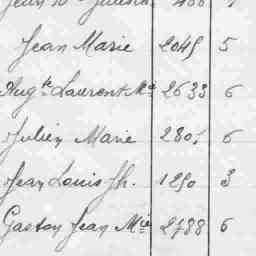 Jean Marie 2045 5
Augte Laurent Mie 2633 6
Julien Marie 280 6
Jean Louis Jh. 1250 3
Gaston Jean Mie 2788 6